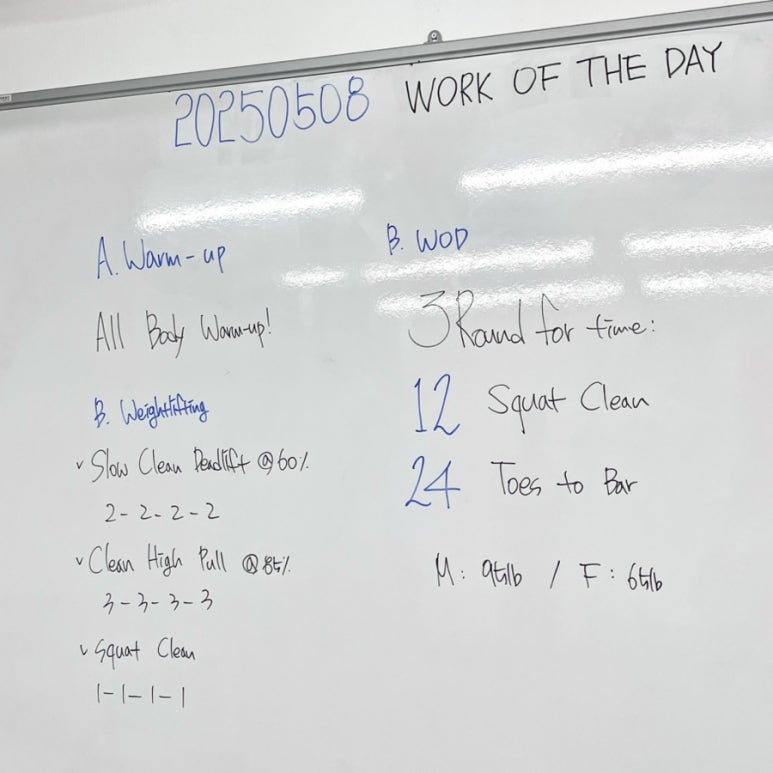 20250508 WORK OF THE DAY
A. Warm-up
All Body Warm-up!
B. Weightlifting
✓ Slow Clean Deadlift @60%
2-2-2-2
✓ Clean High Pull @85%
3-3-3-3
✓ Squat Clean
1-1-1-1
B. WOD
3 Round for time:
12 Squat Clean
24 Toes to Bar
M: 95lb / F: 65lb